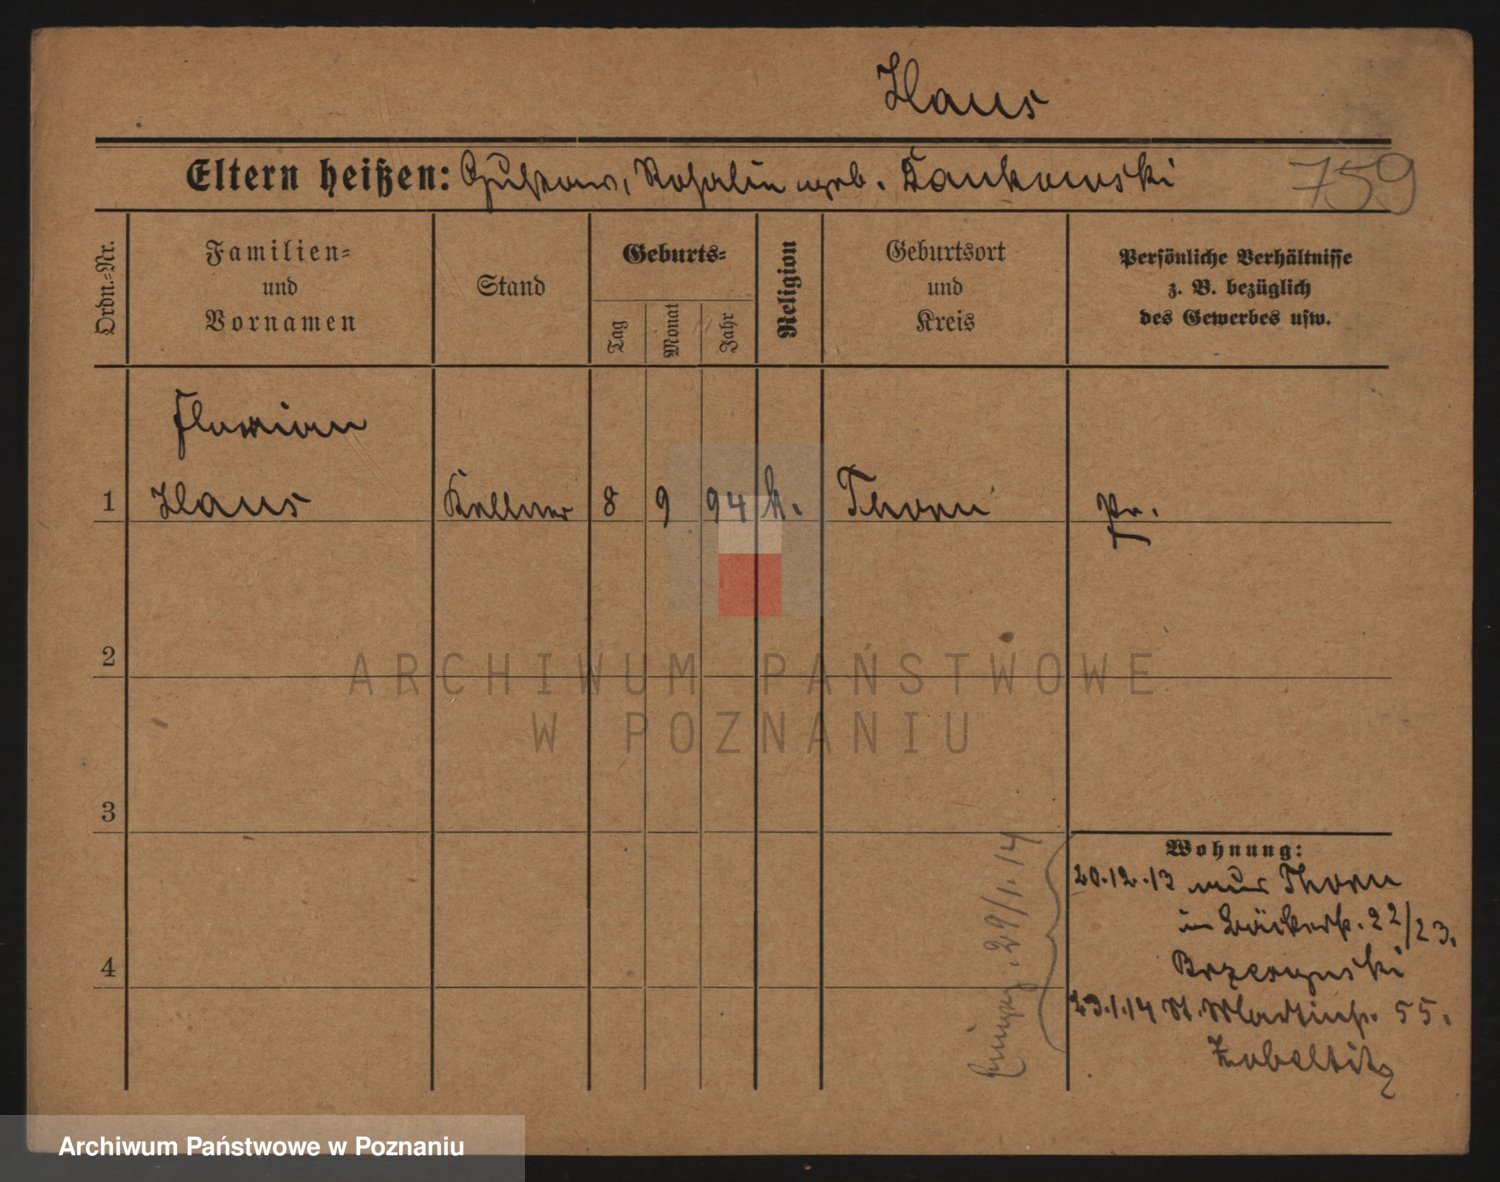 Klaus
Eltern heißen: Gustav, Rosalie geb. Dankowski 759
Ordn.-Nr.
Familien-
und
Vornamen
Stand
Geburts-
Tag
Monat
Jahr
Religion
Geburtsort
und
Kreis
Persönliche Verhältnisse
z. B. bezüglich
des Gewerbes usw.
Florian
1 Klaus Kellner 8 9 94 k. Thorn Pr.
2
3
4
Wohnung:
20.12.13 aus Thorn
in Bäckerstr. 22/23.
23.1.14 St. Martinstr. 55.
Zobeltitz
29/1.14
ARCHIWUM PAŃSTWOWE
W POZNANIU
Archiwum Państwowe w Poznaniu